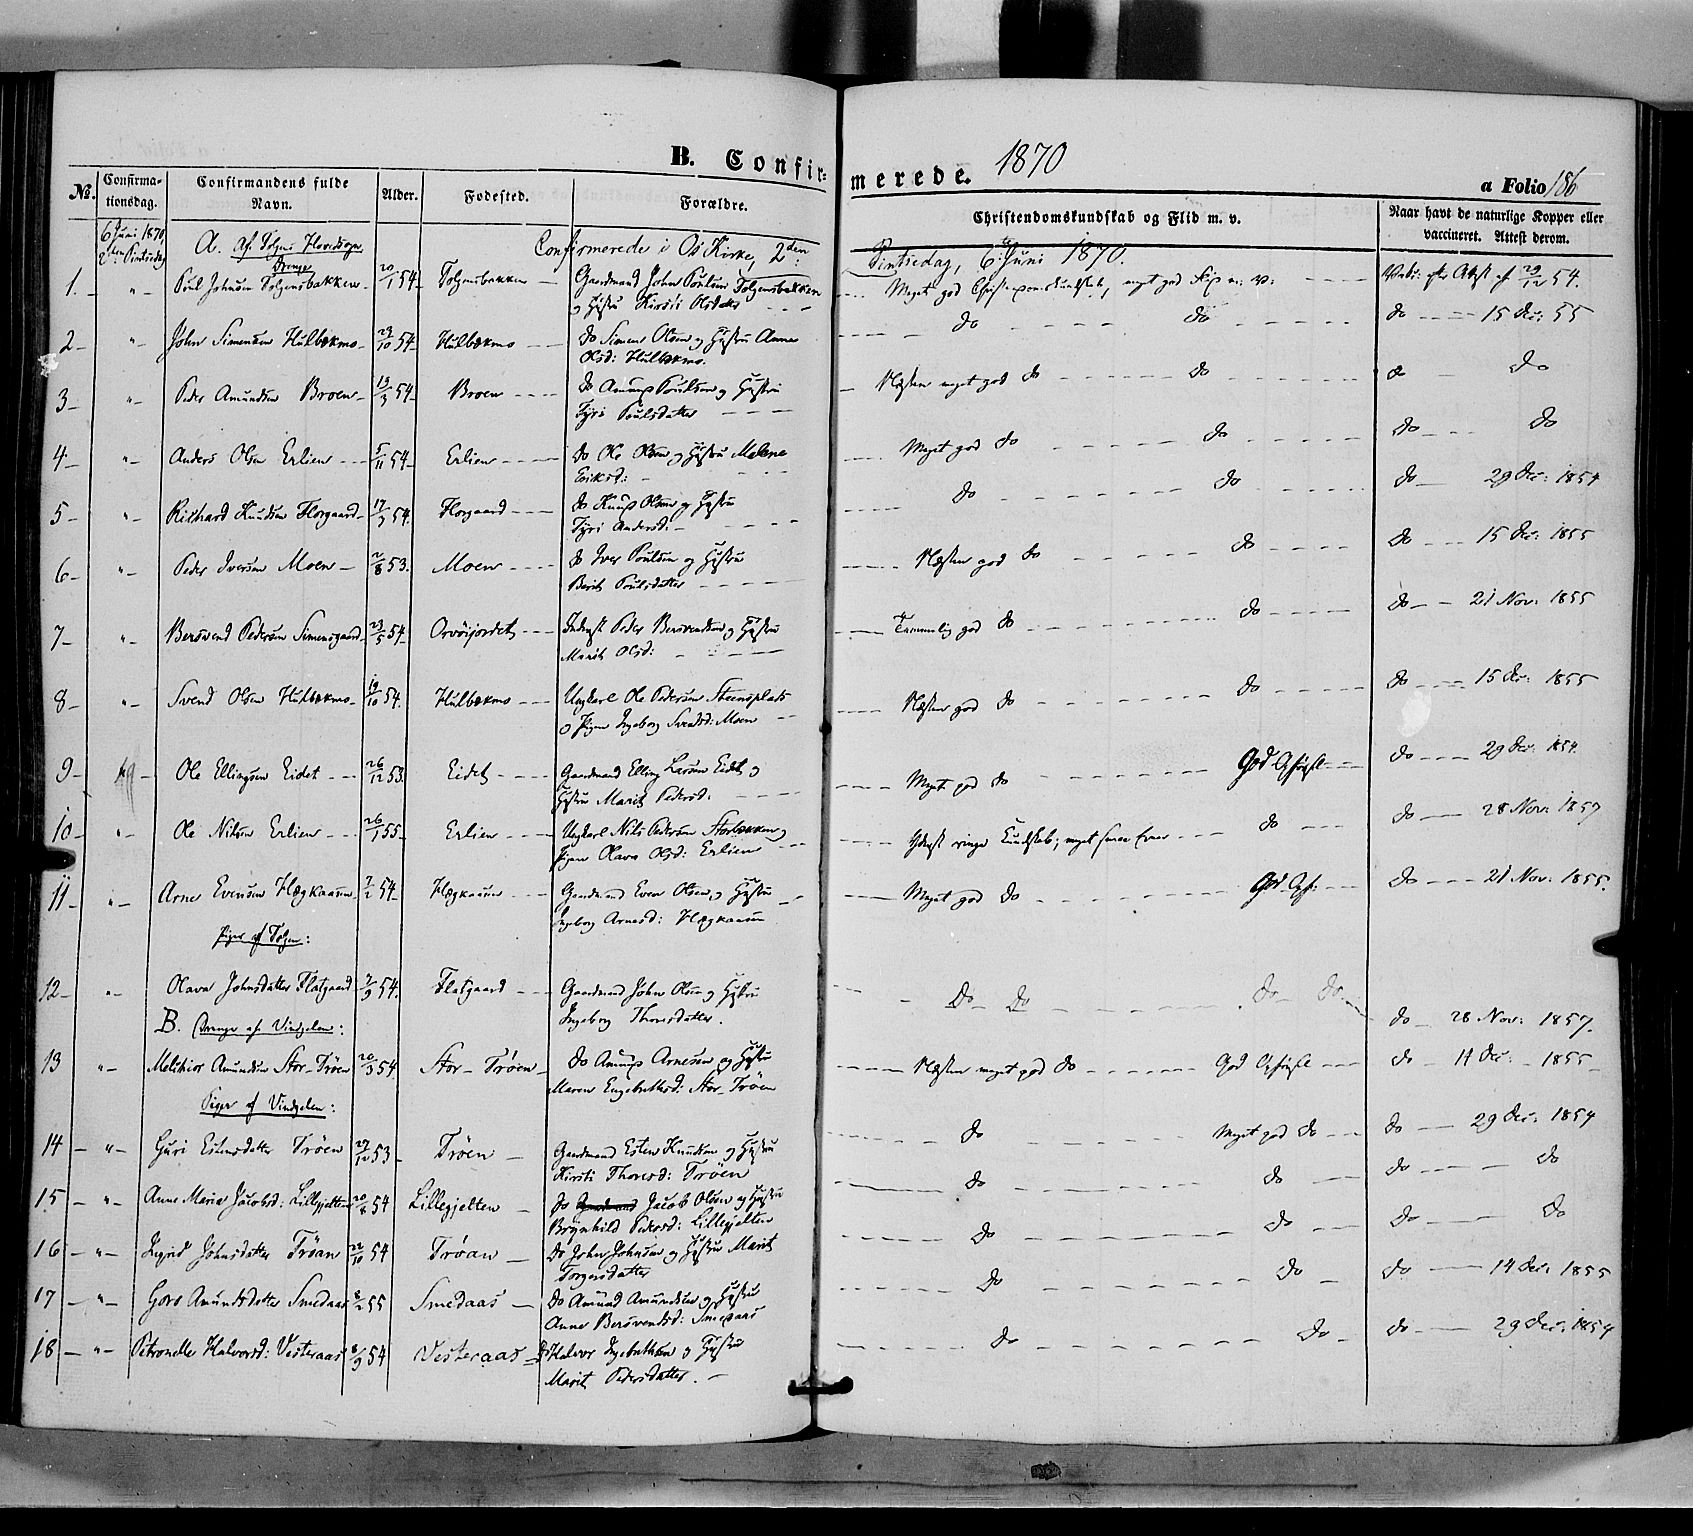 B. Confirmerede. 1870
a Folio 186
No. Confirmationsdag. Confirmandens fulde Navn. Alder. Fødested. Forældre. Christendomskundskab og Flid m. v. Naar havt de naturlige Kopper eller vaccineret. Attest derom.
6 Juni 1870, 2den Pintsedag A. Af Tolgens Hovedsogn Confirmerede i Os Kirke, 2den Pintsedag, 6 Juni 1870.
Drenge
1. " Poul Johnsen Tolgensbakken 20/1 54 Tolgensbakken Gaardmand John Poulsen Tolgensbakken Meget god Christendomskundskab, meget god Flid m: v: Vacc: efter Attest af 29/12 54.
og Hustru Kirsti Olsdatter
2 " John Simensen Hulbækmo 23/10 54 Hulbækmo do Simen Olsen og Hustru Anne do do do 15 Dec: 55
Olsd: Hulbækmo.
3 " Peder Amundsen Broen 13/3 54 Broen do Amund Poulsen og Hustru Næsten meget god do do do do
Tyri Poulsdatter
4 " Anders Olsen Erlien 5/11 54 Erlien do Ole Olsen og Hustru Malene Meget god do do do do
Eriksd:
5 " Richard Knudsen Horgaard 17/7 54 Horgaard do Knud Olsen og Hustru do do do 29 Dec: 1854
Tyri Andersd:
6 " Peder Iversen Moen 2/8 53. Moen do Iver Poulsen og Hustru Næsten god do do do 15 Dec: 1855
Berit Poulsdatter
7 " Bersvend Pedersen Simensgaard 23/5 54 Orvösjordet Inderst Peder Bersvendsen og Hustru Temmelig god do do do 21 Nov: 1855
Marit Olsd:
8 " Svend Olsen Hulbækmo 19/10 54. Hulbækmo Ungkarl Ole Pedersen Steensplads Næsten god do do do 15 Dec: 1855
og Pigen Ingeborg Svendsd: Moen
9 Ole Ellingsen Eidet 26/12 53. Eidet Gaardmand Elling Larsen Eidet og Meget god do God Opførsel do 29 Dec: 1854.
Hustru Marit Pedersd:
10 " Ole Nilsen Erlien 26/1 55 Erlien Ungkarl Nils Pedersen Storbækken og Yderst ringe Kundskab; meget smaa Evner do do 28 Nov: 1857
Pigen Olava Olsd: Erlien
11 " Arne Evensen Hægkaasen 7/2 54 Hægkaasen Gaardmand Even Olsen og Hustru Meget god do God Opf: do 21 Nov: 1855.
Ingeborg Arnesd: Hægkaasen
Piger af Tolgen:
12 " Olava Johnsdatter Flatgaard 7/9 54. Flatgaard Gaardmand John Olsen og Hustru Do Do do do do 28 Nov: 1857.
Ingeborg Thoresdatter.
B. Drenge af Vindgelen:
13 " Melchior Amundsen Stor-Trøen 20/3 54. Stor-Trøen do Amund Arnesen og Hustru Næsten meget god do God Opførsel do 11 Dec: 1855
Maren Engebretsd: Stor-Trøen
Piger af Vindgelen:
14 " Guri Estensdatter Trøen 27/12 53 Trøen Gaardmand Esten Knudsen og Hustru do Meget god do do 29 Dec: 1854
Kirsti Thoresd: Trøen
15 " Anne Maria Jacobsd: Lillegjelten 20/8 54 Lillegjelten do Gaardmand Jacob Olsen og Hustru do do do do
Brynhild Pedersd: Lillegjelten
16 " Ingrid Johnsdatter Trøan 22/10 54 Trøan do John Johnsen og Hustru Marit do do do do
Torgersdatter
17 " Goro Amundsdatter Smedaas 8/2 55 Smedaas do Amund Amundsen og Hustru do do do 14 Dec: 1855
Anne Bersvendsd: Smedaas
18 " Petronelle Halvorsd: Vesteraas 8/9 54 Vesteraas do Halvor Ingebretsen og Hustru do do do 29 Dec: 1854
Marit Pedersdatter.